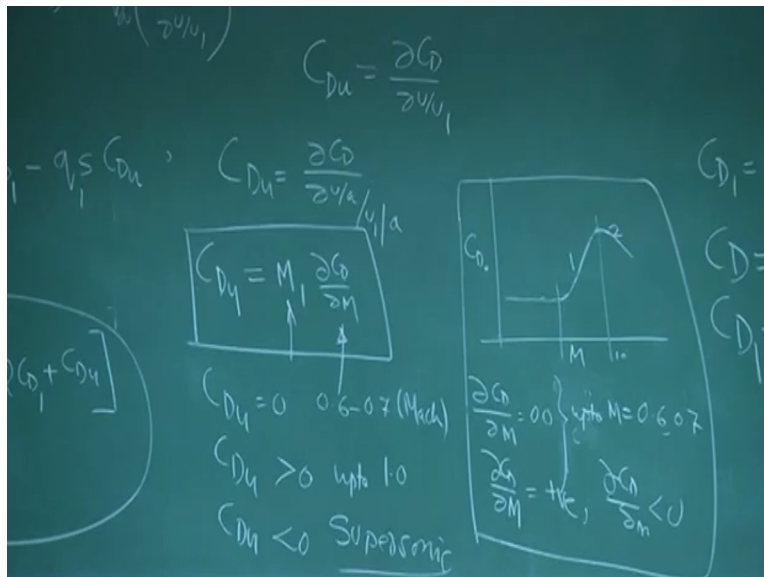 ∂u/u₁)
C_Du = ∂C_D / ∂u/u₁
- q₁s C_Du ,
C_Du = ∂C_D / ∂u/a / u₁/a
C_Du = M₁ ∂C_D/∂M
C_D₁ + C_Du ]
C_Du = 0 0.6-0.7 (Mach)
C_Du > 0 upto 1.0
C_Du < 0 Supersonic
C_D. 1 2
M 1.0
∂C_D/∂M = 0.0 } upto M = 0.6 0.7
∂C_D/∂M = +ve, ∂C_D/∂m < 0
C_D₁ =
C_D =
C_D₁